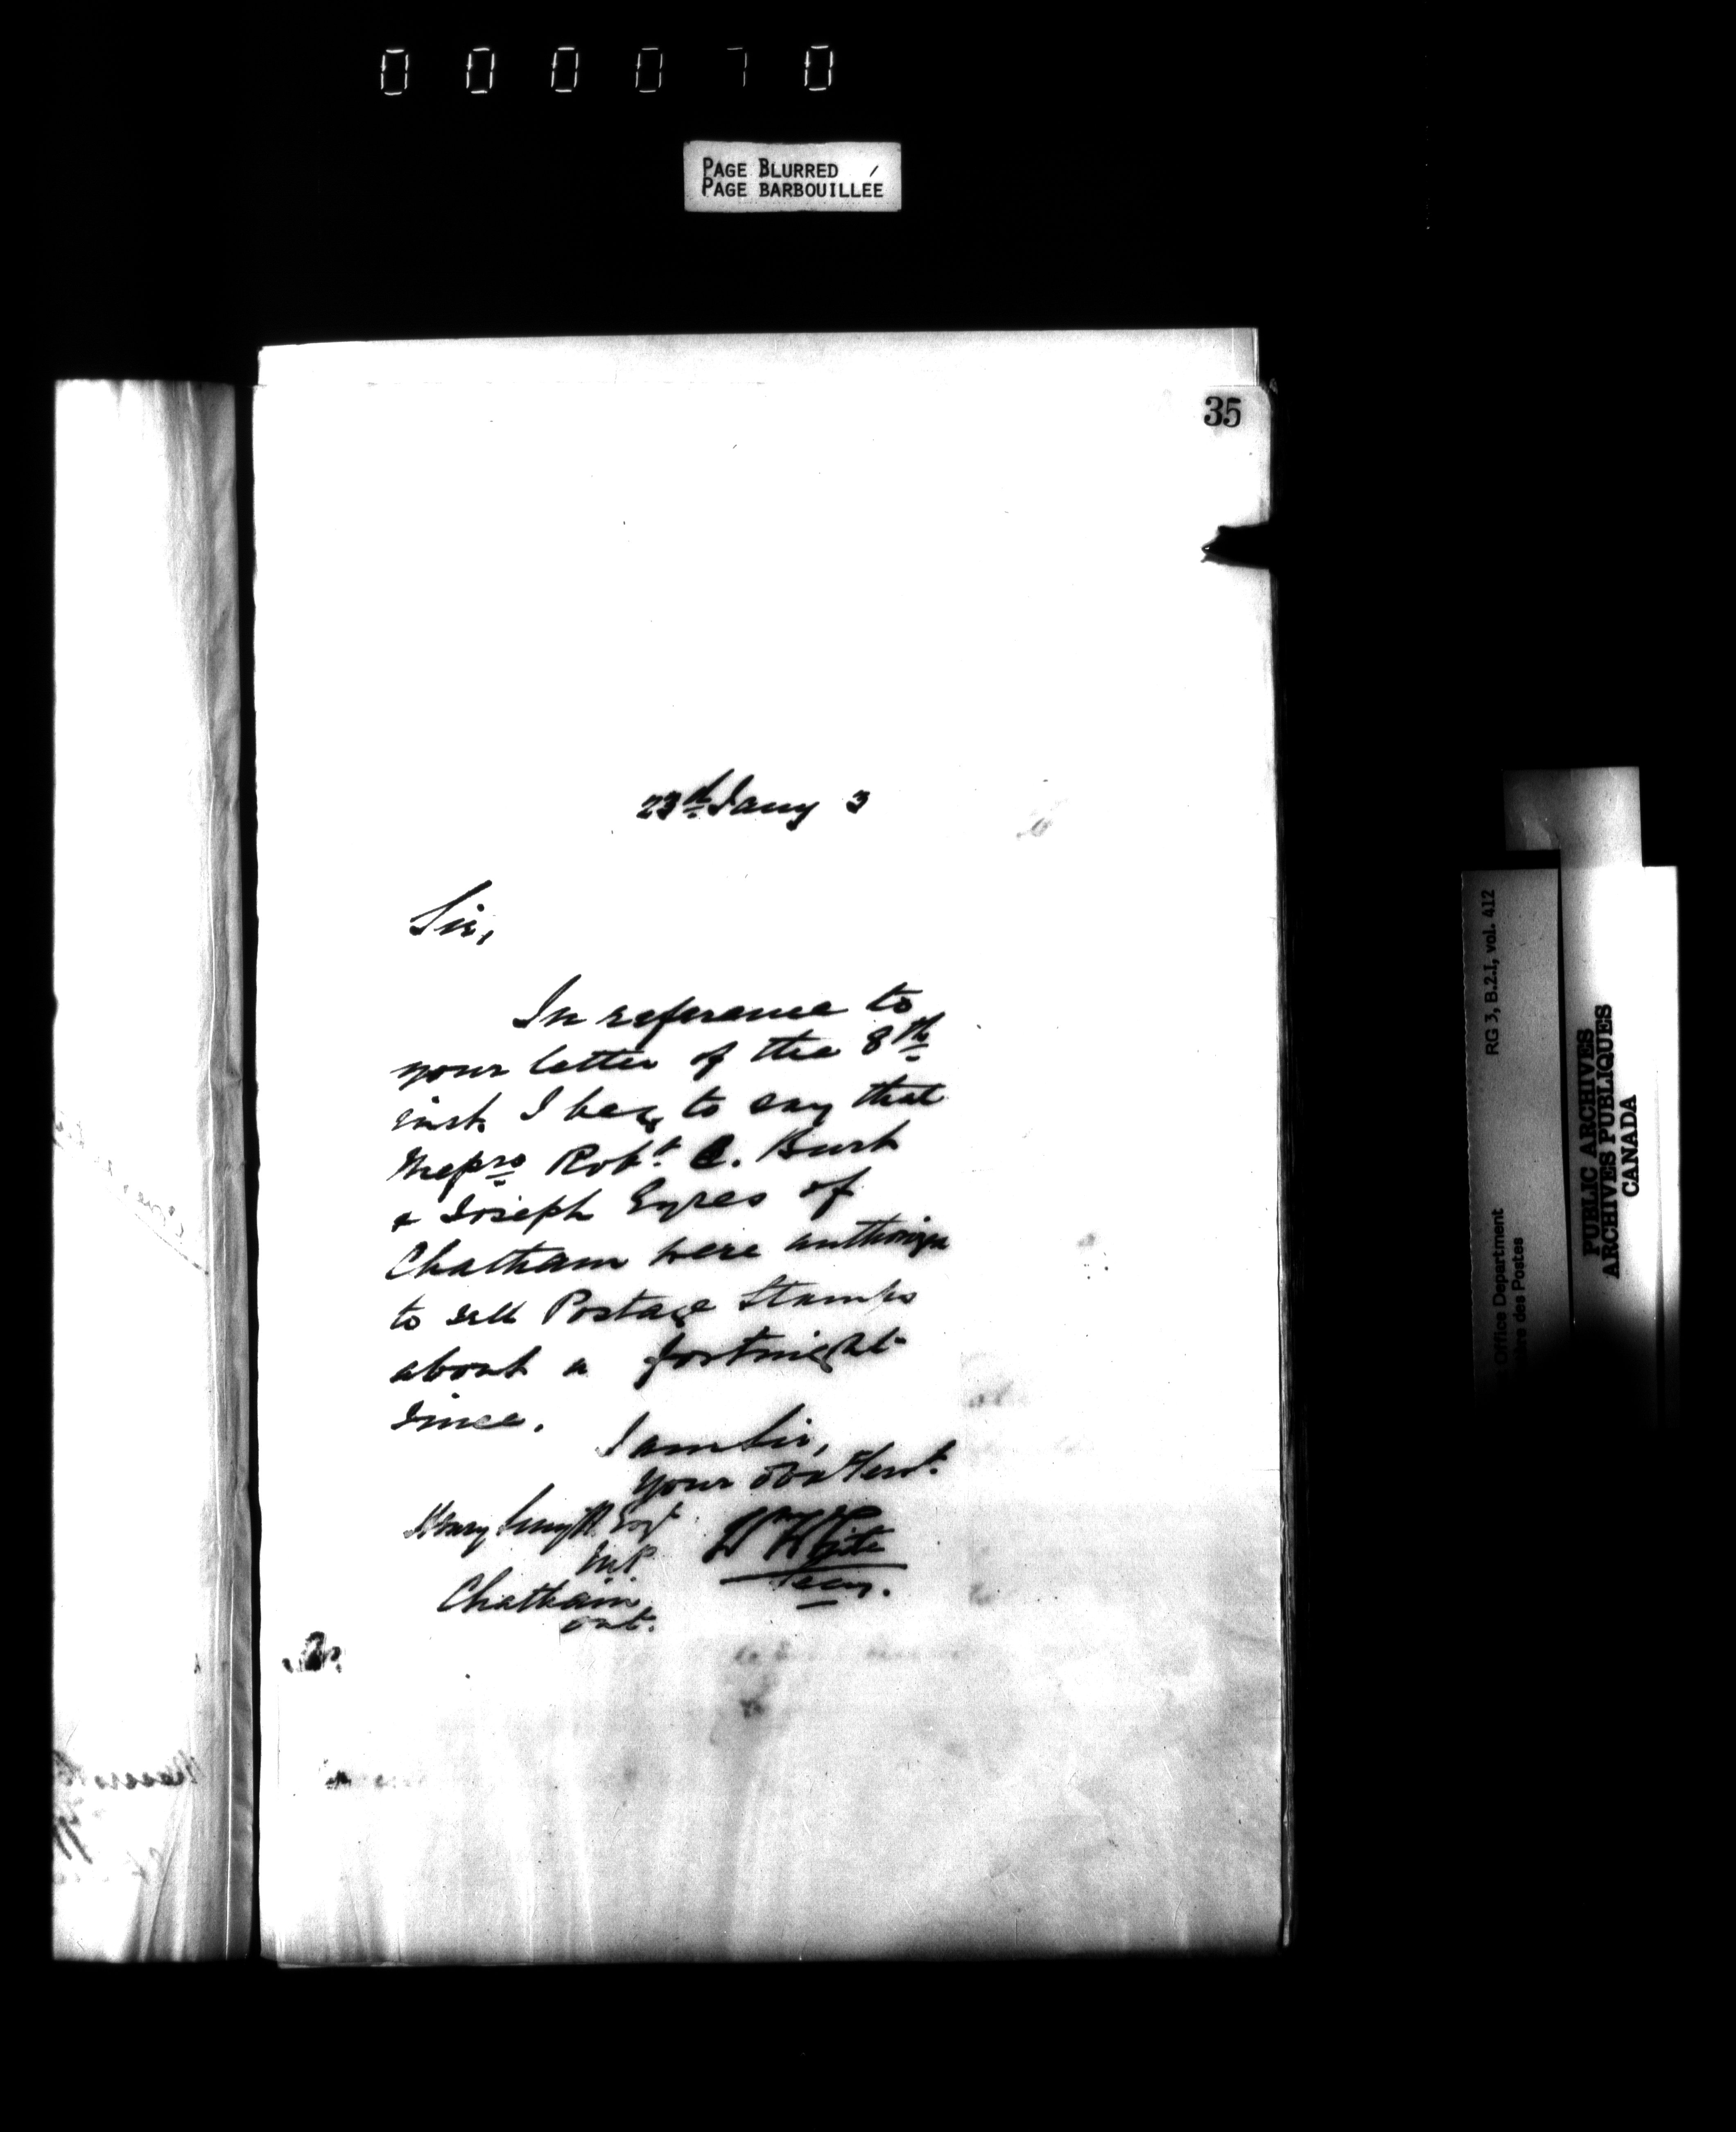 000070
PAGE BLURRED
PAGE BARBOUILLÉE
35
23rd Jany 3
Sir,
In reference to
your letter of the 8th
inst. I beg to say that
Messrs Robt. C. Burt
& Joseph Eyres of
Chatham were
to sell Postage Stamps
about a fortnight
since.
I am Sir,
Your Obdt Servt.
Henry Smyth Esqr
M.P.
Chatham
Ont.
Wm White
Secy.
RG 3, B.2.I, vol. 412
Office Department
des Postes
PUBLIC ARCHIVES
ARCHIVES PUBLIQUES
CANADA